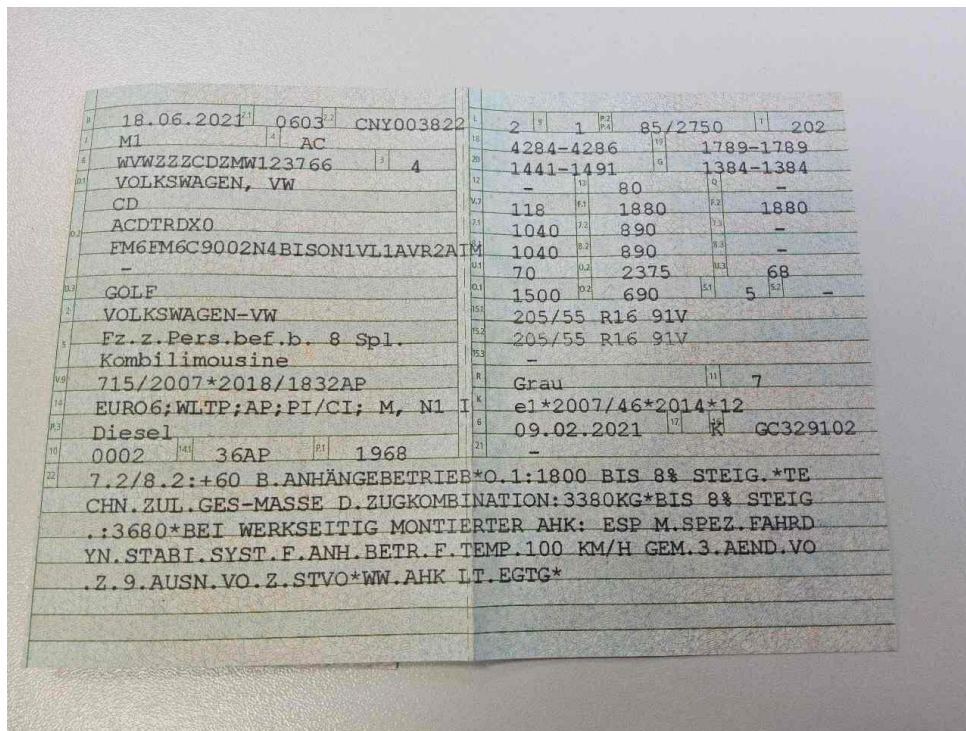 B 18.06.2021 2.1 0603 2.2 CNY003822
J M1 4 AC
E WVWZZZCDZMW123766 3 4
D.1 VOLKSWAGEN, VW
CD
D.2 ACDTRDX0
FM6FM6C9002N4BISON1VL1AVR2AIM
–
D.3 GOLF
2 VOLKSWAGEN-VW
5 Fz.z.Pers.bef.b. 8 Spl.
Kombilimousine
V.9 715/2007*2018/1832AP
14 EURO6;WLTP;AP;PI/CI; M, N1 I
P.3 Diesel
10 0002 14.1 36AP P.1 1968
L 2 9 1 P.2 P.4 85/2750 T 202
18 4284-4286 19 1789-1789
20 1441-1491 G 1384-1384
12 – 13 80 Q –
V.7 118 F.1 1880 F.2 1880
7.1 1040 7.2 890 7.3 –
1040 8.2 890 8.3 –
U.1 70 U.2 2375 U.3 68
O.1 1500 O.2 690 S.1 5 S.2 –
15.1 205/55 R16 91V
15.2 205/55 R16 91V
15.3 –
R Grau 11 7
K e1*2007/46*2014*12
6 09.02.2021 17 K 16 GC329102
21 –
22 7.2/8.2:+60 B.ANHÄNGEBETRIEB*O.1:1800 BIS 8% STEIG.*TE
CHN.ZUL.GES-MASSE D.ZUGKOMBINATION:3380KG*BIS 8% STEIG
.:3680*BEI WERKSEITIG MONTIERTER AHK: ESP M.SPEZ.FAHRD
YN.STABI.SYST.F.ANH.BETR.F.TEMP.100 KM/H GEM.3.AEND.VO
.Z.9.AUSN.VO.Z.STVO*WW.AHK LT.EGTG*